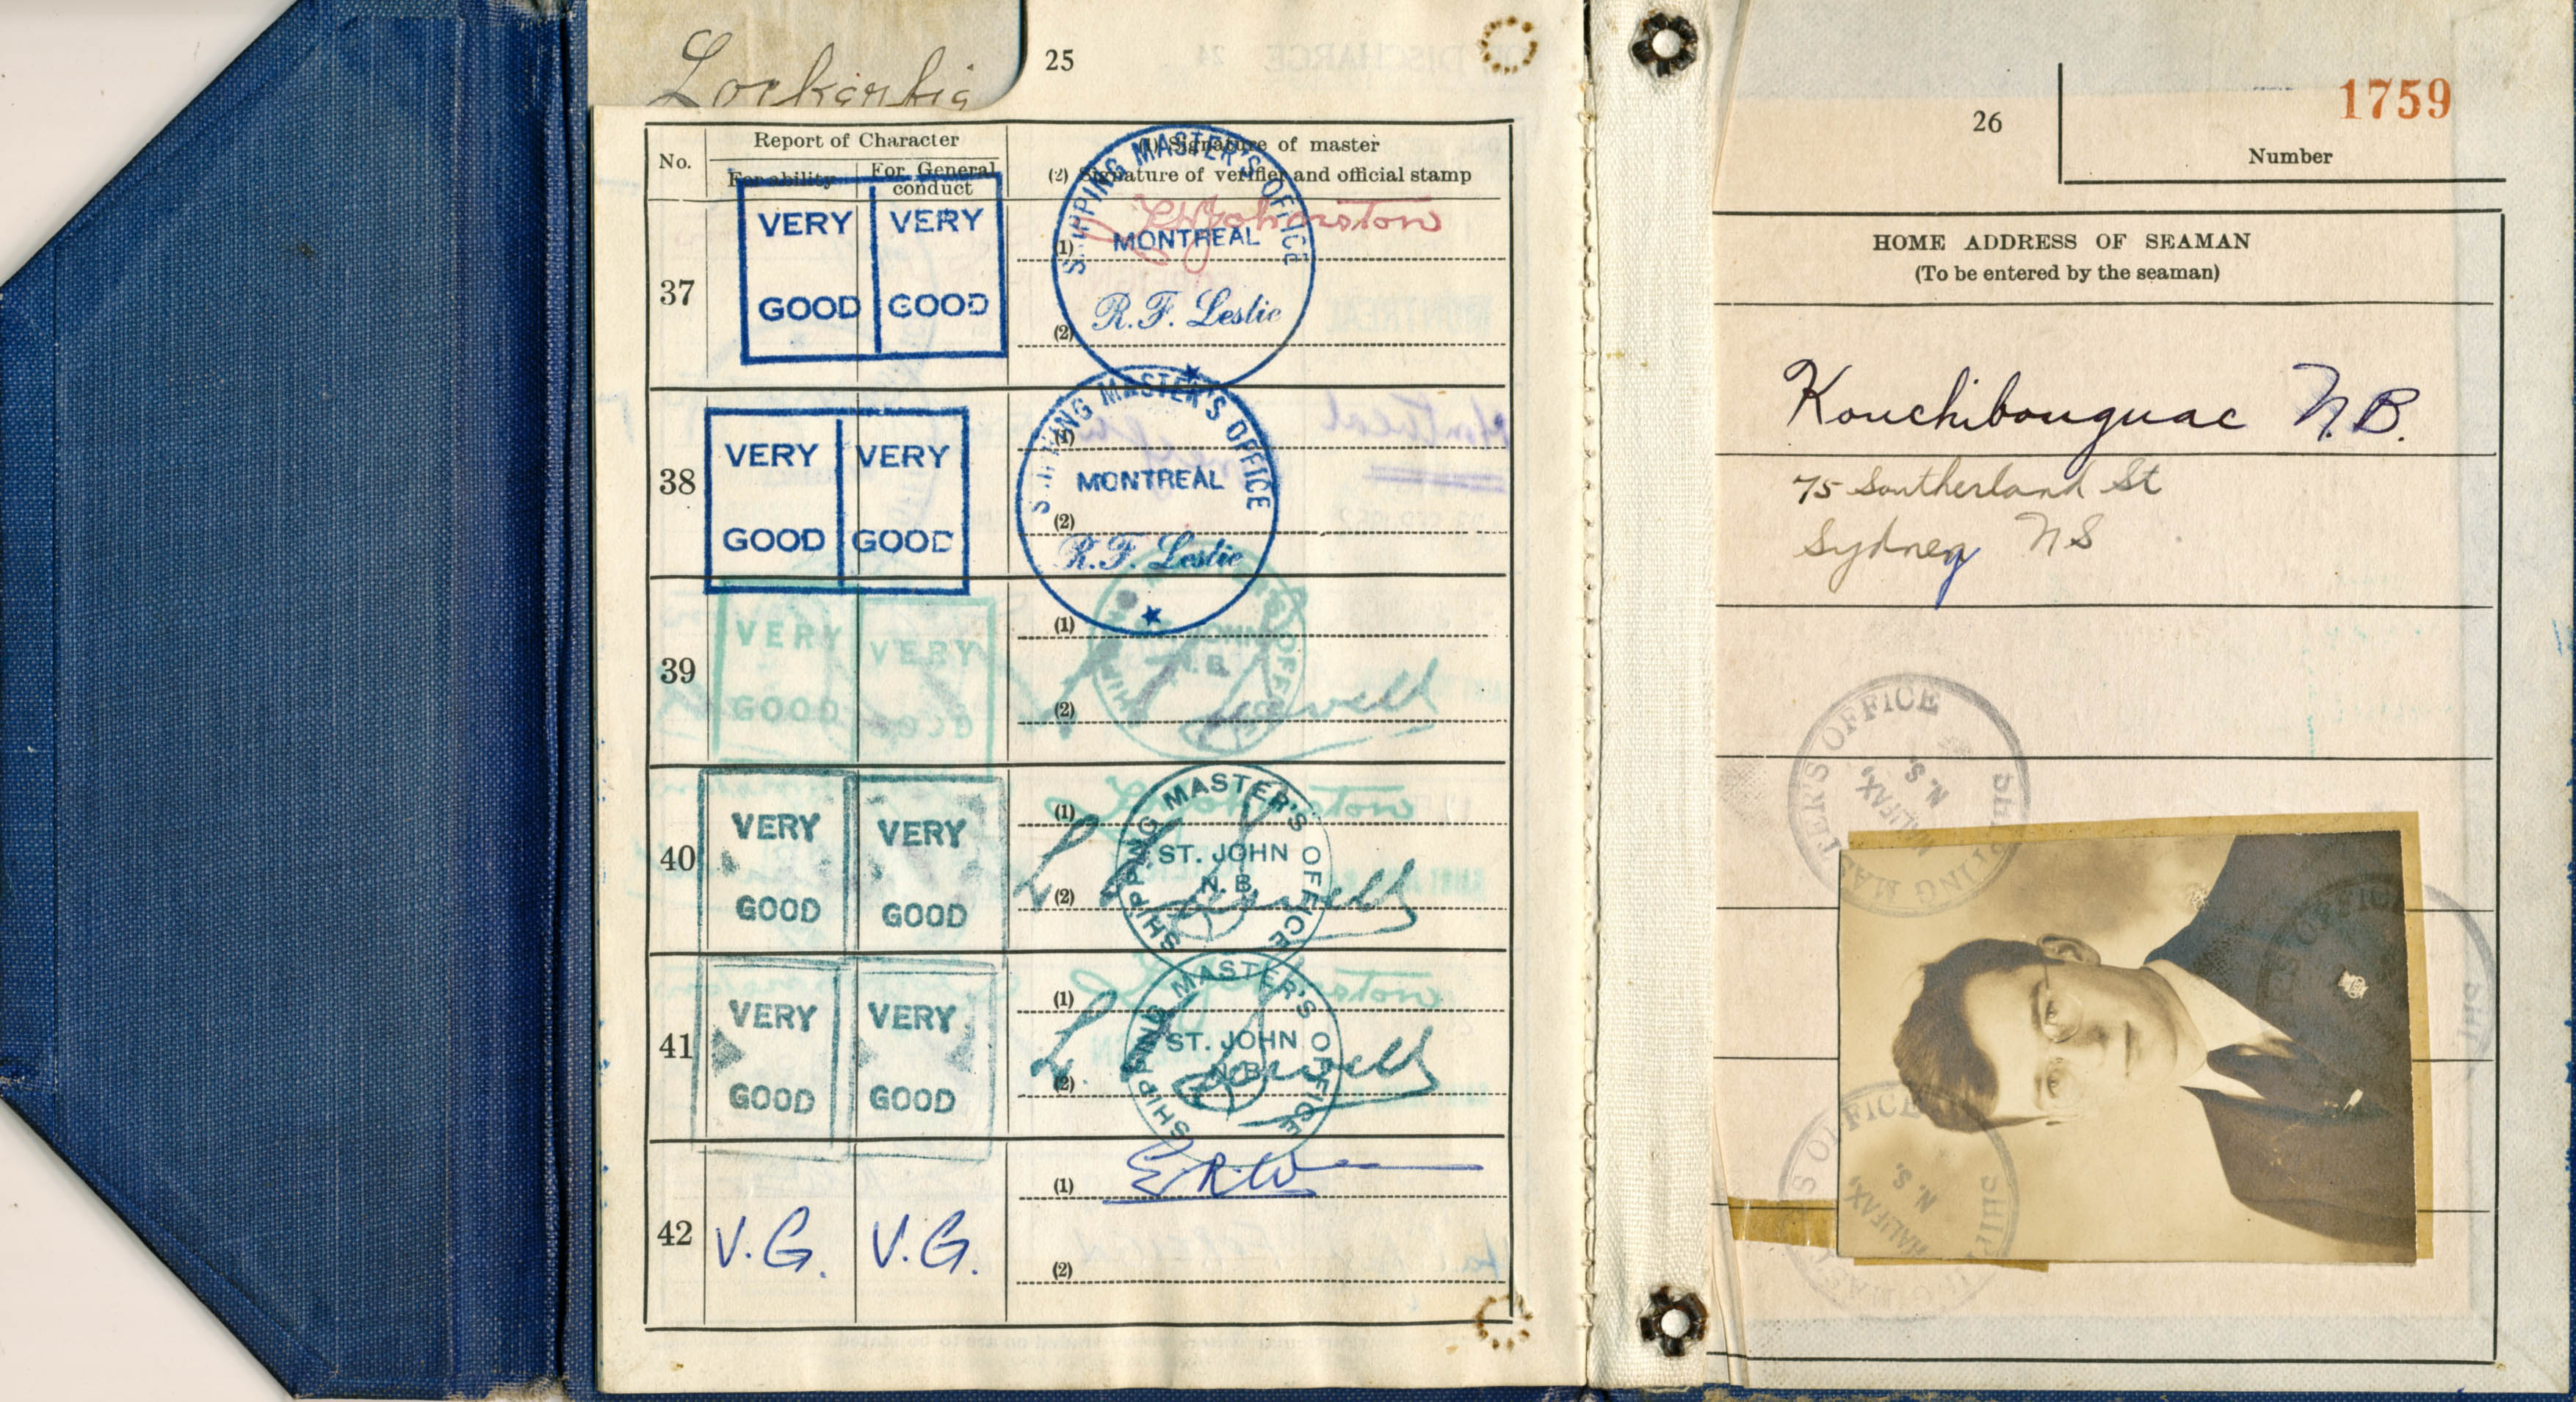 25
No.
Report of Character
For ability
For General conduct
(1) Signature of master
(2) Signature of verifier and official stamp
37
VERY VERY
GOOD GOOD
(1)
(2)
SHIPPING MASTER'S OFFICE
MONTREAL
R.F. Leslie
38
VERY VERY
GOOD GOOD
(1)
(2)
SHIPPING MASTER'S OFFICE
MONTREAL
R.F. Leslie
39
VERY VERY
GOOD GOOD
(1)
(2)
N.B.
40
VERY VERY
GOOD GOOD
(1)
(2)
SHIPPING MASTER'S OFFICE
ST. JOHN
N. B.
41
VERY VERY
GOOD GOOD
(1)
(2)
SHIPPING MASTER'S OFFICE
ST. JOHN
N.B.
42
V.G. V.G.
(1) E R.W
(2)
26
1759
Number
HOME ADDRESS OF SEAMAN
(To be entered by the seaman)
Kouchibouguac N.B.
75 Southerland St
Sydney NS
SHIPPING MASTER'S OFFICE
HALIFAX,
N. S.
HALIFAX,
N. S.